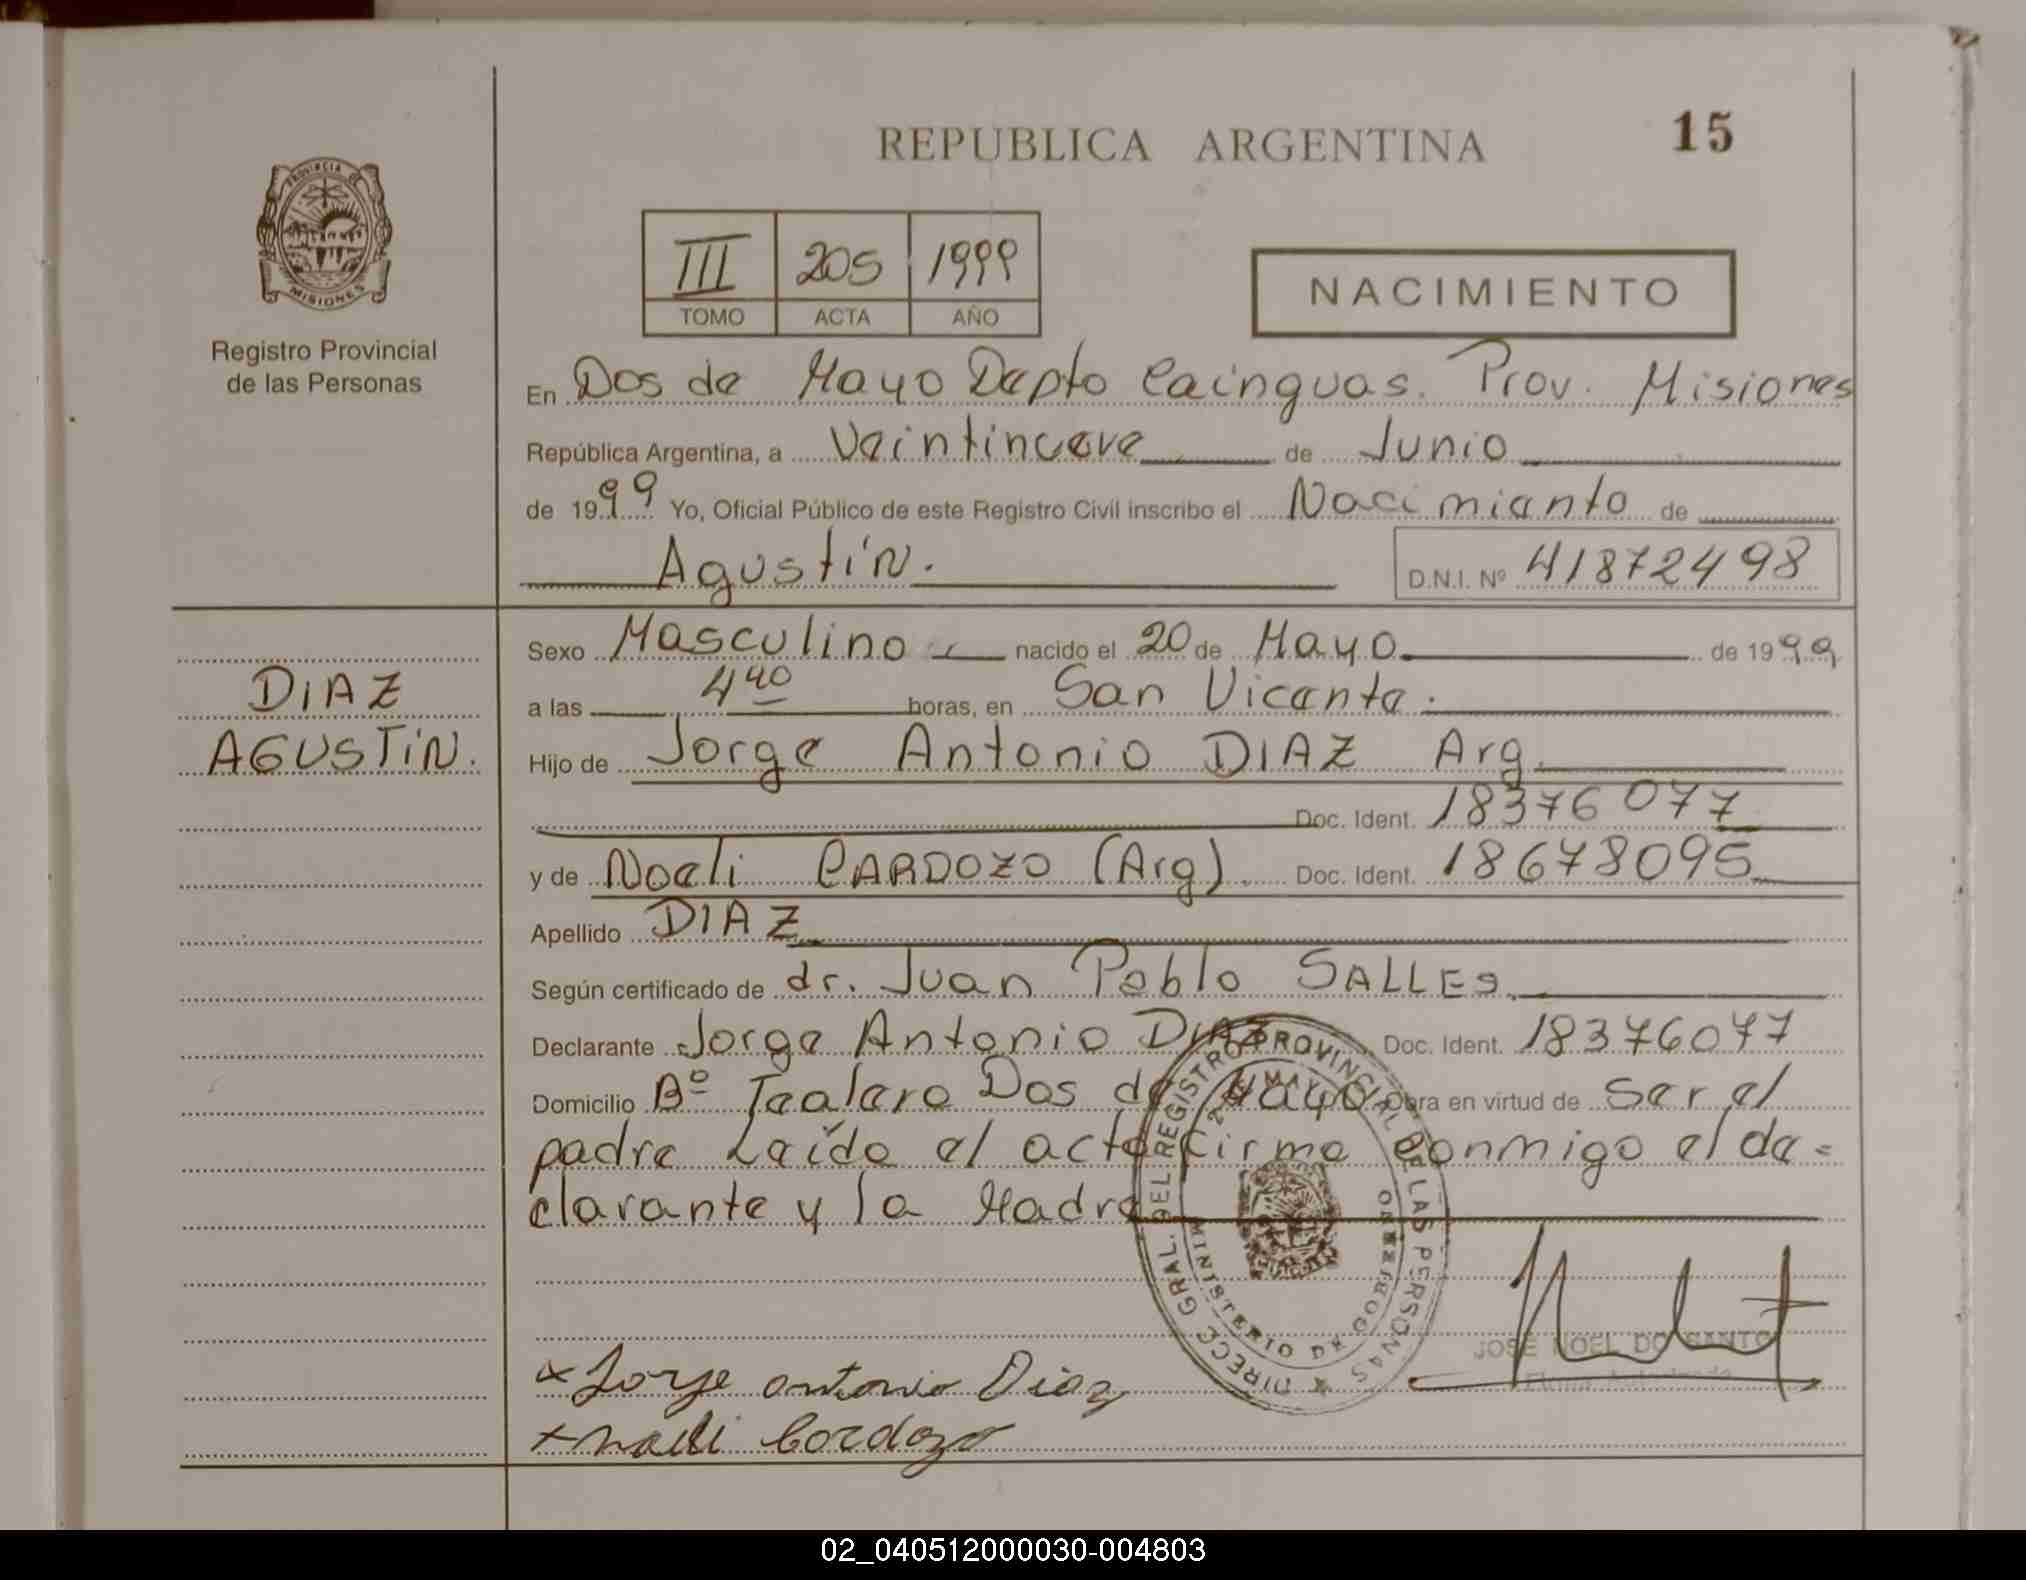 REPUBLICA ARGENTINA
15
PROVINCIA DE
MISIONES
Registro Provincial
de las Personas
III 205 1999
TOMO ACTA AÑO
NACIMIENTO
En Dos de Mayo Depto Cainguas. Prov. Misiones
República Argentina, a Veintinueve de Junio
de 1999 Yo, Oficial Público de este Registro Civil inscribo el Nacimiento de
Agustín.
D.N.I. Nº 41872498
DIAZ
AGUSTíN.
Sexo Masculino nacido el 20 de Mayo de 1999
a las 4 40 horas, en San Vicente.
Hijo de Jorge Antonio DIAZ Arg.
Doc. Ident. 18376077
y de Noeli CARDOZO (Arg). Doc. Ident. 18678095
Apellido DIAZ
Según certificado de dr. Juan Pablo SALLES.
Declarante Jorge Antonio DIAZ Doc. Ident. 18376077
Domicilio Bº Tealero Dos de Mayo Obra en virtud de Ser el
padre Leído el acta firma conmigo el de=
clarante y la Madre
DIRECC GRAL. DEL REGISTRO PROVINCIAL DE LAS PERSONAS
MINISTERIO DE GOBIERNO
JOSE NOEL DO SANTO
x Jorge antonio Diaz
x noeli Cardozo
02_040512000030-004803